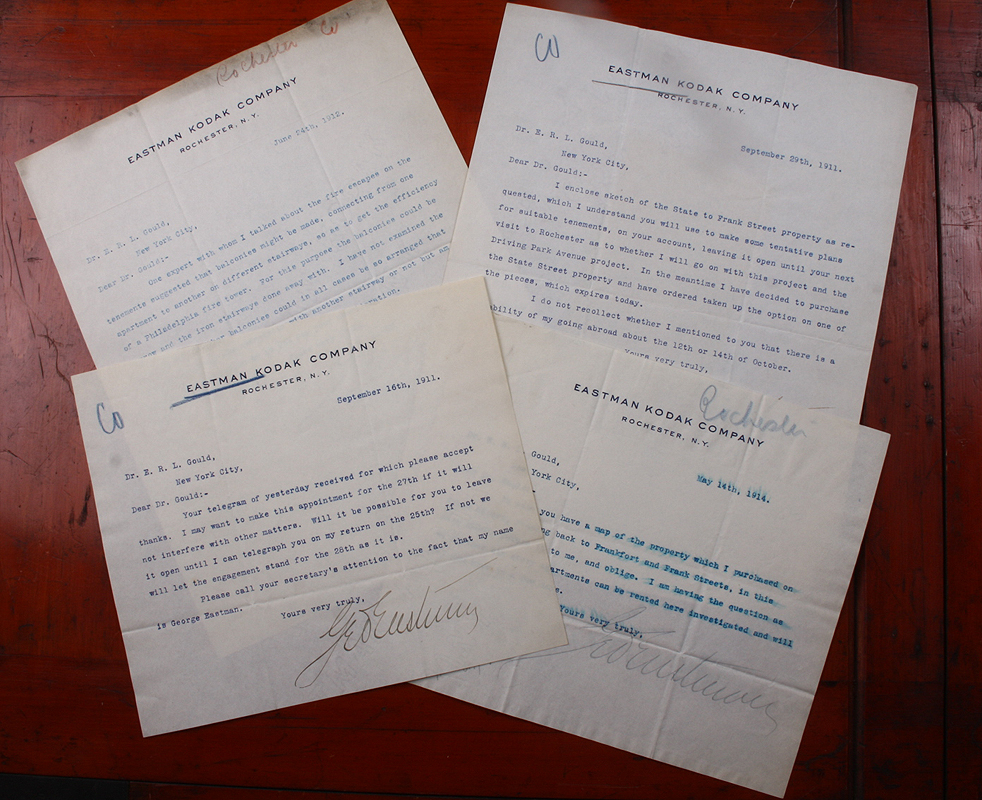 Rochester Co
EASTMAN KODAK COMPANY
ROCHESTER, N.Y.
June 24th, 1912.
Dr. E. R. L. Gould,
New York City,
Dear Dr. Gould:-
One expert with whom I talked about the fire escapes on the
tenement suggested that balconies might be made, connecting from one
apartment to another on different stairways, so as to get the efficiency
of a Philadelphia fire tower. For this purpose the balconies could be
and the iron stairway done away with. I have not examined the
balconies could in all cases be so arranged that
with another stairway or not but am
CO
EASTMAN KODAK COMPANY
ROCHESTER, N.Y.
September 29th, 1911.
Dr. E. R. L. Gould,
New York City,
Dear Dr. Gould:-
I enclose sketch of the State to Frank Street property as re-
quested, which I understand you will use to make some tentative plans
for suitable tenements, on your account, leaving it open until your next
visit to Rochester as to whether I will go on with this project and the
Driving Park Avenue project. In the meantime I have decided to purchase
the State Street property and have ordered taken up the option on one of
the pieces, which expires today.
I do not recollect whether I mentioned to you that there is a
bility of my going abroad about the 12th or 14th of October.
Yours very truly,
CO
EASTMAN KODAK COMPANY
ROCHESTER, N.Y.
September 16th, 1911.
Dr. E. R. L. Gould,
New York City,
Dear Dr. Gould:-
Your telegram of yesterday received for which please accept
thanks. I may want to make this appointment for the 27th if it will
not interfere with other matters. Will it be possible for you to leave
it open until I can telegraph you on my return on the 25th? If not we
will let the engagement stand for the 28th as it is.
Please call your secretary's attention to the fact that my name
is George Eastman.
Yours very truly,
Geo Eastman
Rochester
EASTMAN KODAK COMPANY
ROCHESTER, N.Y.
May 14th, 1914.
Gould,
York City,
you have a map of the property which I purchased on
ng back to Frankfort and Frank Streets, in this
to me, and oblige. I am having the question as
artments can be rented here investigated and will
e.
Yours very truly,
Geo Eastman